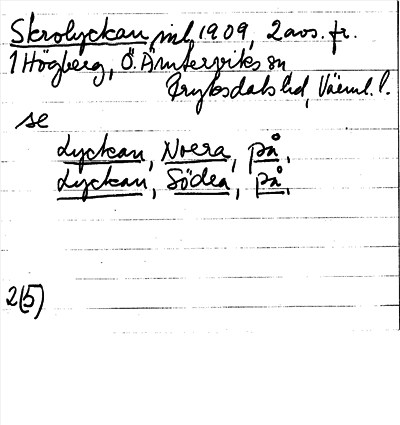 Skrolyckan, inl, 1909, 2 avs. fr.
1 Högberg, Ö. Ämterviks sn
Fryksdals hd, Värml. l.
se
Lyckan, Norra, på.
Lyckan, Södra, på.
2(5)